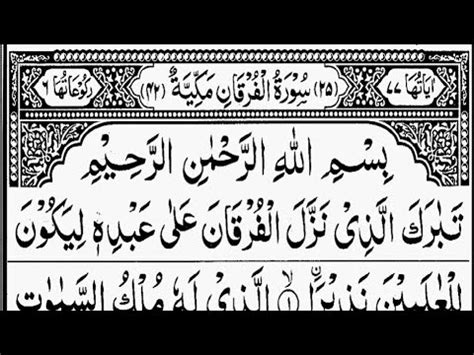 اٰيَاتُهَا ٧٧ (٢٥) سُوْرَةُ الْفُرْقَانِ مَكِّيَّةٌ (٤٢) رُكُوْعَاتُهَا ٦
بِسْمِ اللّٰهِ الرَّحْمٰنِ الرَّحِيْمِ
تَبٰرَكَ الَّذِيْ نَزَّلَ الْفُرْقَانَ عَلٰى عَبْدِهٖ لِيَكُوْنَ
لِلْعٰلَمِيْنَ نَذِيْرَا ۙ ١ الَّذِيْ لَهٗ مُلْكُ السَّمٰوٰتِ